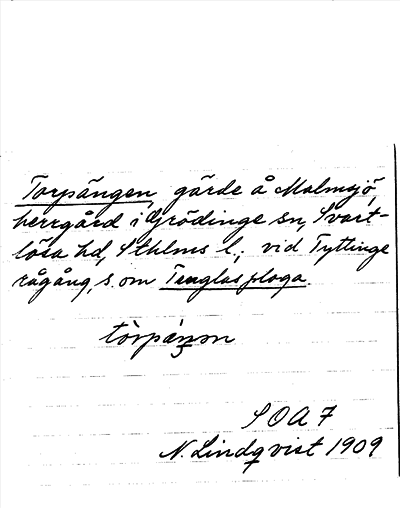 Torpängen, gärde å Malmsjö,
herrgård i Grödinge sn, Svart-
lösa hd, Sthlms l.; vid Tyttinge
rågång, s. om
tòrpä́ŋən
SOA 7
N. Lindqvist 1909